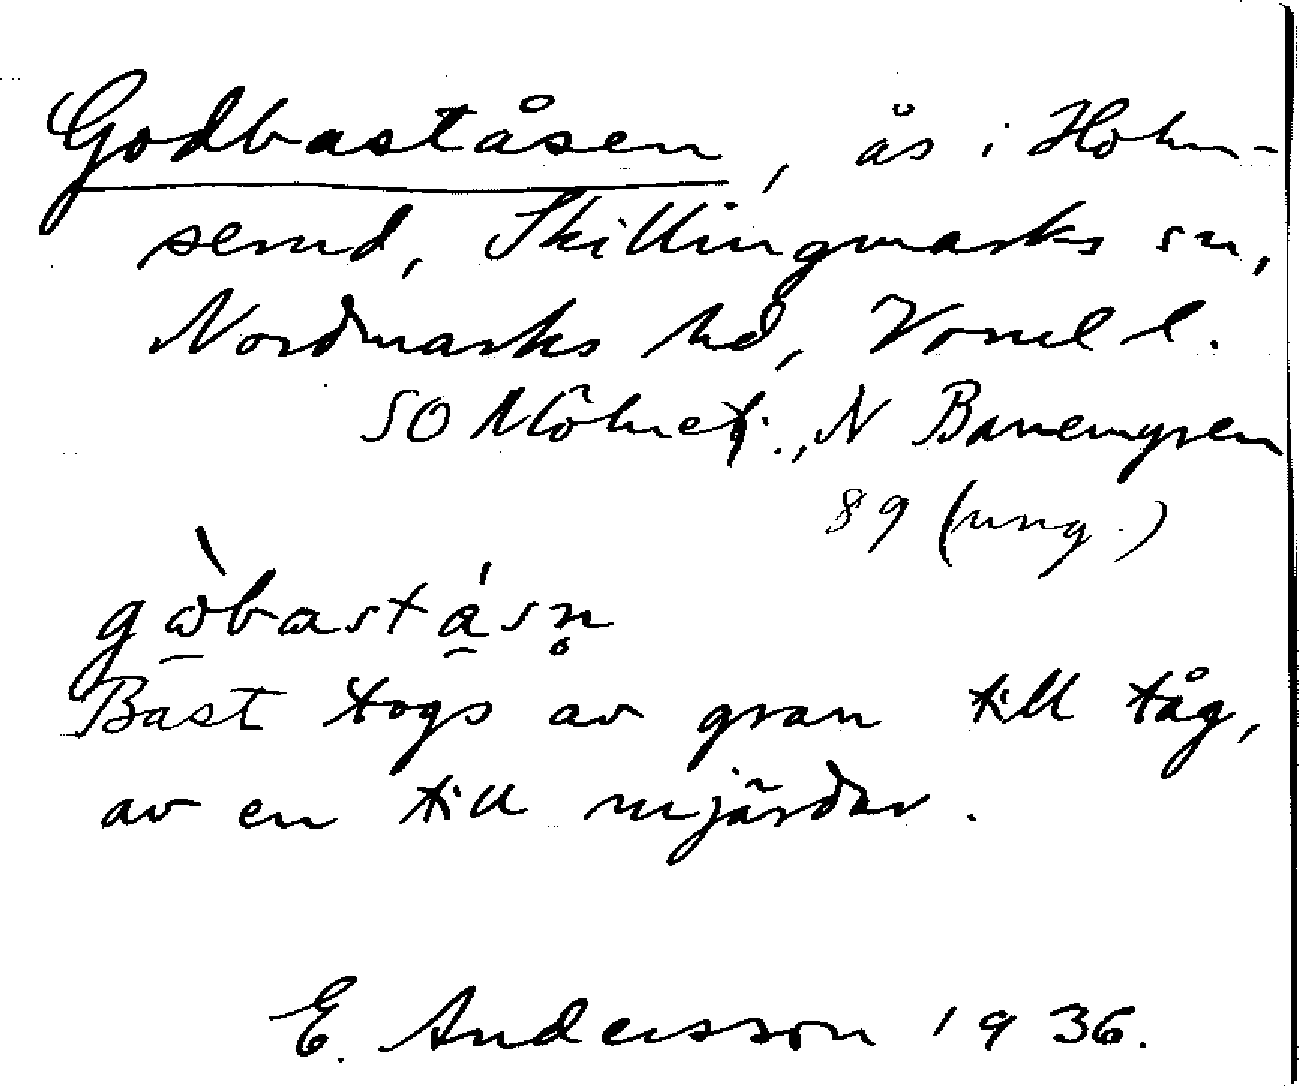 Godbaståsen, ås i Holm-
serud, Skillingmarks sn,
Nordmarks hd, Vrml l.
SO Mölnerj., N Banemyren
89 (ung.)
gὼbastásn̥
Bast togs av gran till tåg,
av en till mjärdar.
E. Andersson 1936.